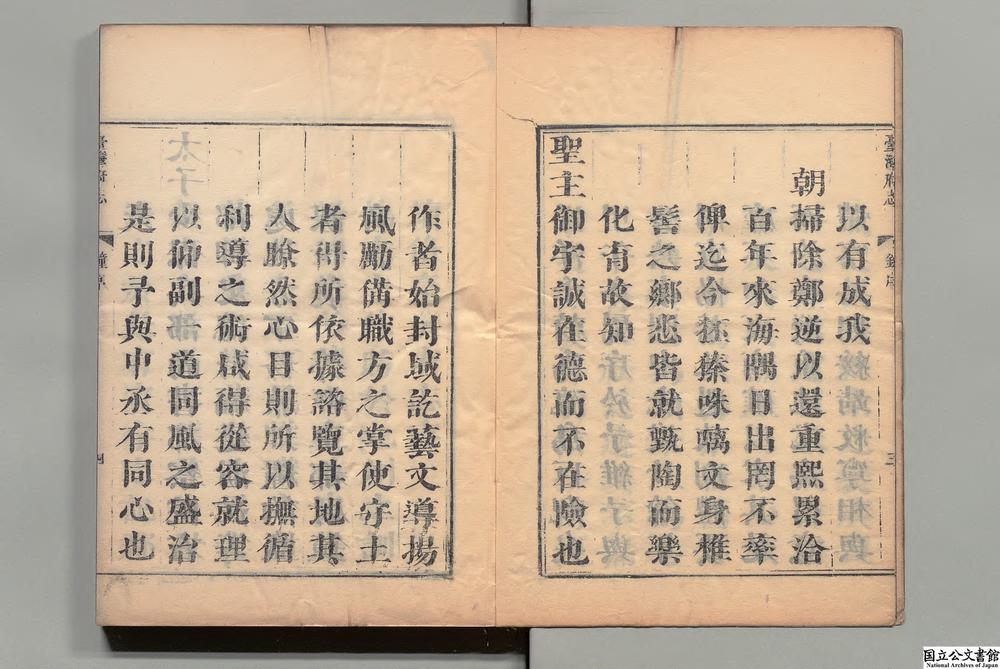 臺灣府志
鐘序
三
以有成我
朝掃除鄭逆以還重熙累洽
百年來海隅日出罔不率
俾迄今狉獉咮㖞文身椎
髻之鄉悉皆就甄陶而樂
化育故知
聖主御宇誠在德而不在險也
作者始封域訖藝文導揚
風勵備職方之掌使守土
者得所依據諮覽其地其
人瞭然心目則所以撫循
利導之術咸得從容就理
以仰副 道同風之盛治
是則予與中丞有同心也
臺灣府志
鐘序
四
国立公文書館
National Archives of Japan